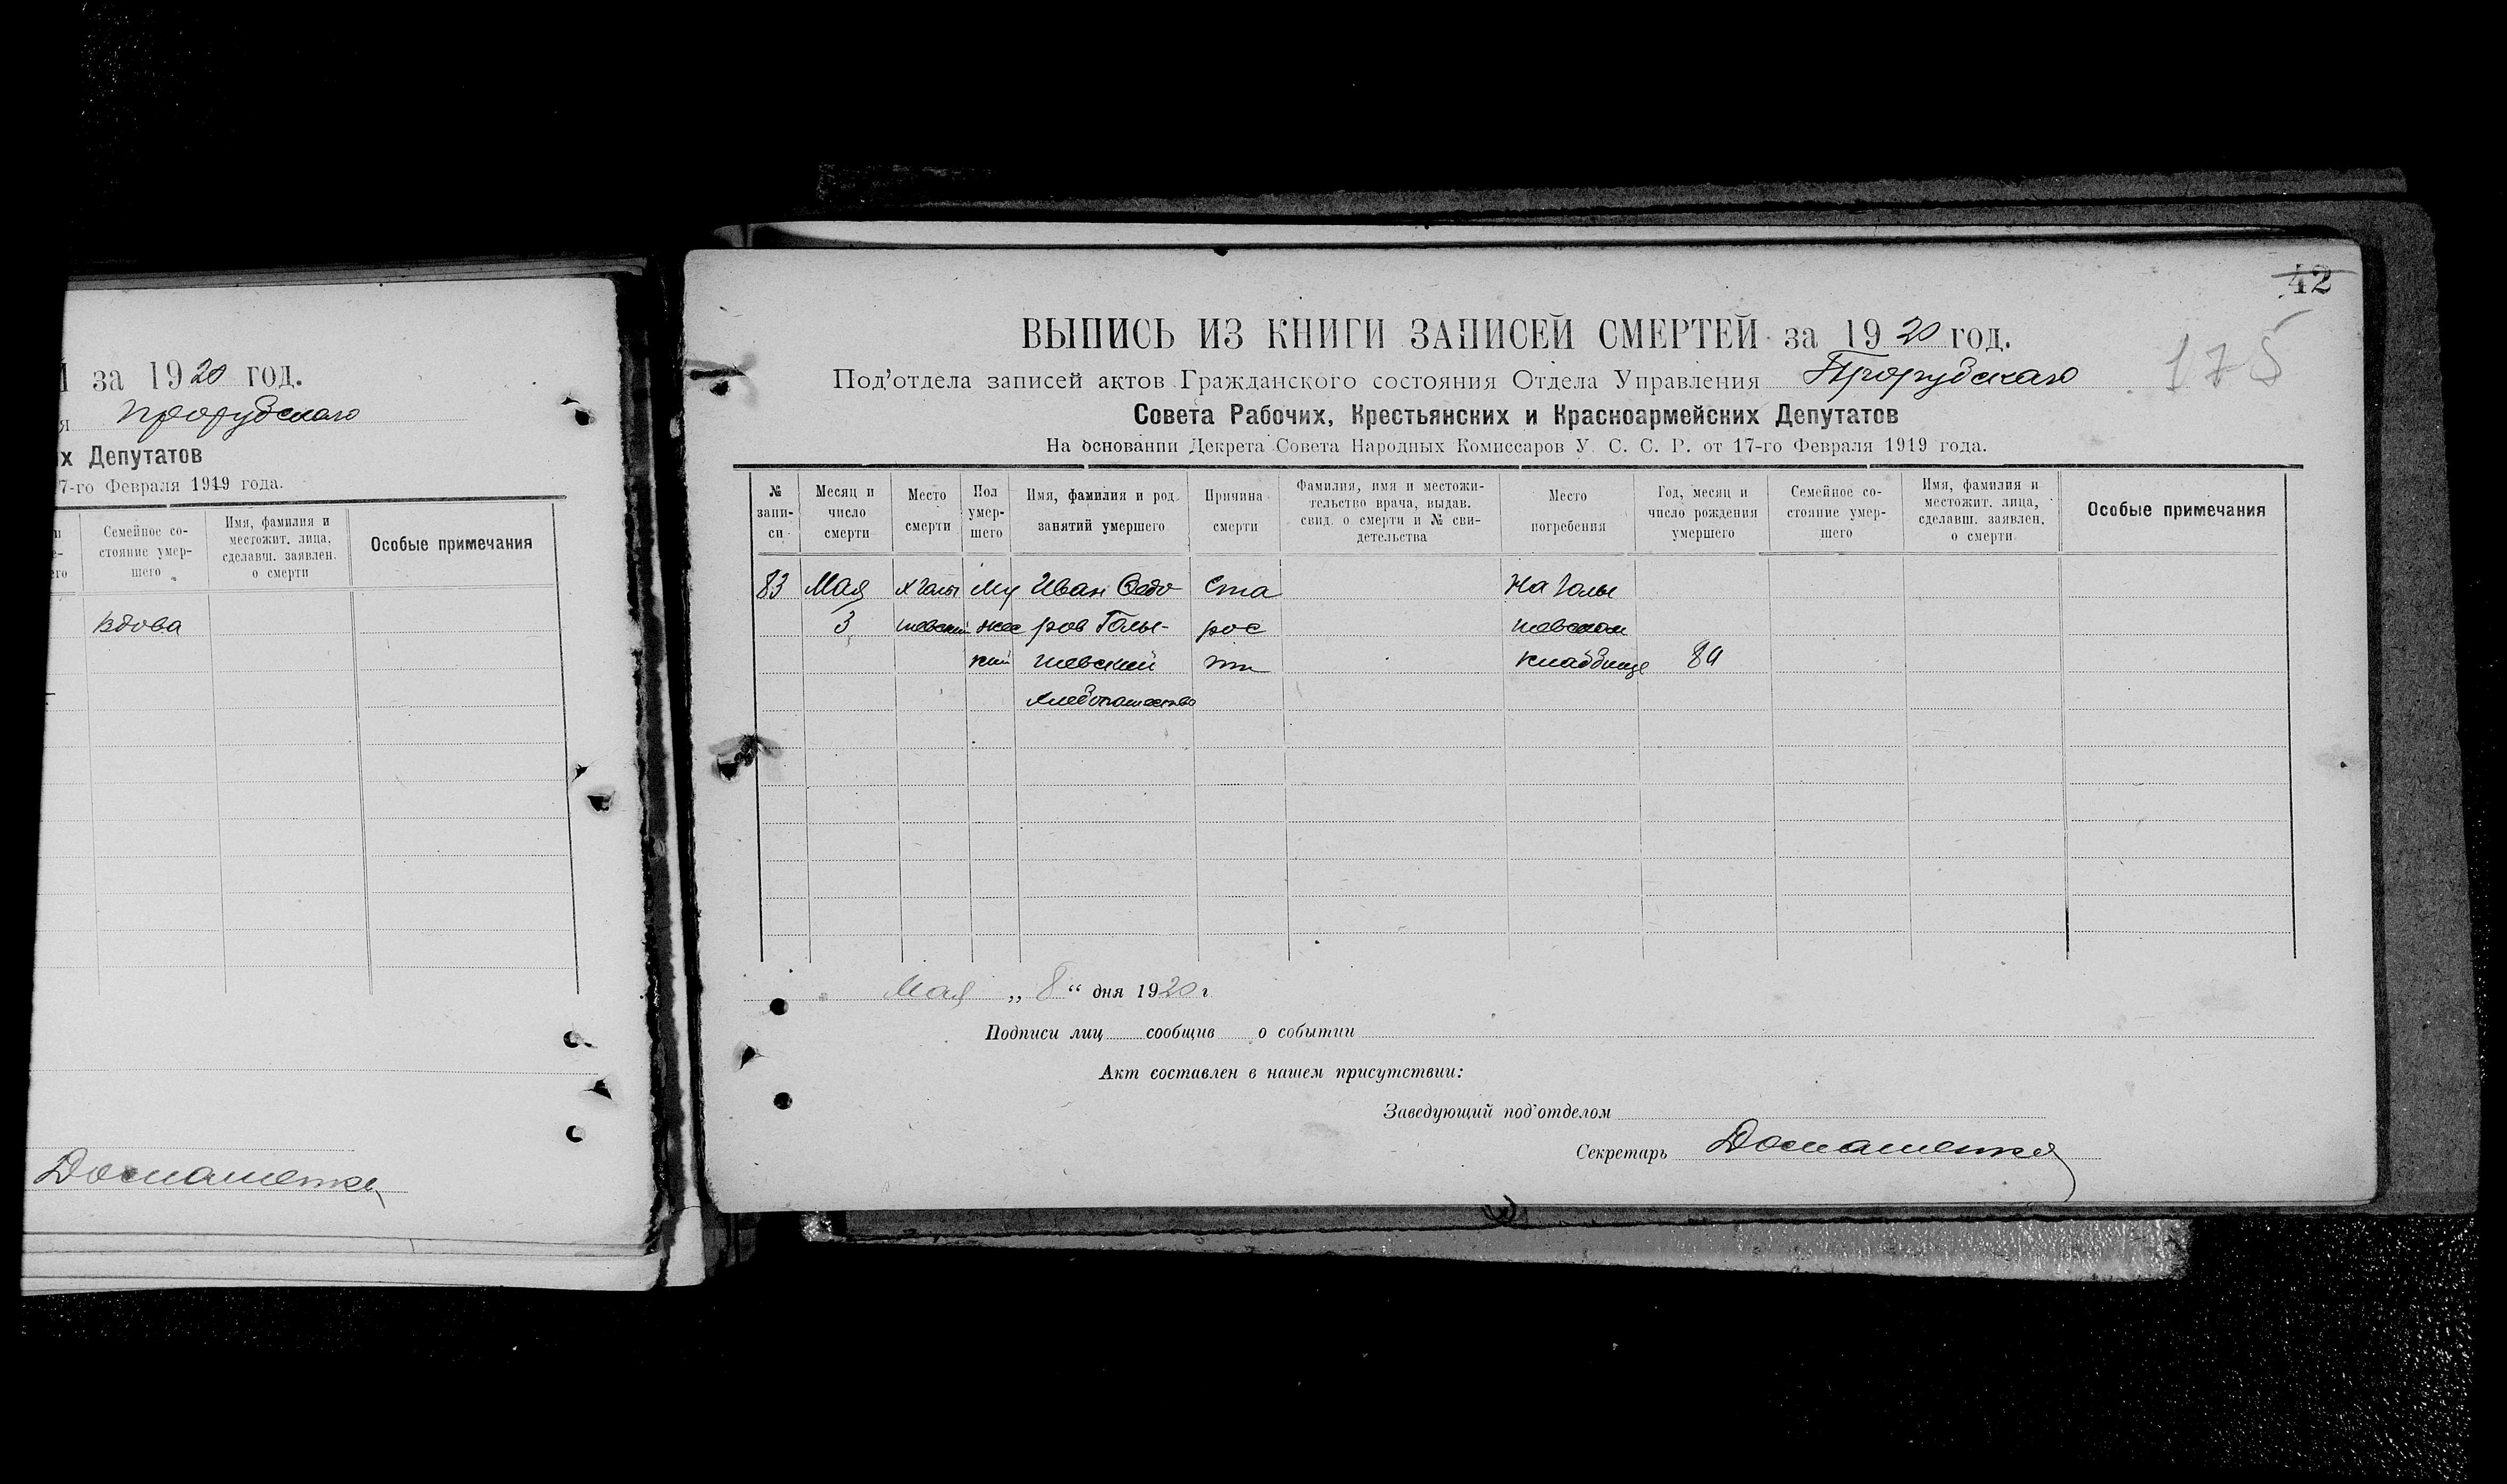 И за 1920 год.
я Прорубского
х Депутатов
7-го Февраля 1919 года.
Семейное со-
стояние умер-
шего
Имя, фамилия и
местожит. лица,
сделавш. заявлен.
о смерти
Особые примечания
вдова
42
175
ВЫПИСЬ ИЗ КНИГИ ЗАПИСЕЙ СМЕРТЕЙ за 1920 год.
Под'отдела записей актов Гражданского состояния Отдела Управления Прорубского
Совета Рабочих, Крестьянских и Красноармейских Депутатов
На основании Декрета Совета Народных Комиссаров У. С. С. Р. от 17-го Февраля 1919 года.
№
запи-
си
Месяц и
число
смерти
Место
смерти
Пол
умер-
шего
Имя, фамилия и род
занятий умершего
Причина
смерти
Фамилия, имя и местожи-
тельство врача, выдав.
свид. о смерти и № сви-
детельства
Место
погребения
Год, месяц и
число рождения
умершего
Семейное со-
стояние умер-
шего
Имя, фамилия и
местожит. лица,
сделавш. заявлен.
о смерти
Особые примечания
83 Мая х Голы Му Иван Федо Ста На Голы
3 шевский жес ров Голы- рос шевском
кий шевский ти кладбище 84
хлебопашество
Мая „ 8 “ дня 1920 г
Подписи лиц сообщив о событии
Акт составлен в нашем присутствии:
Заведующий под'отделом
Секретарь